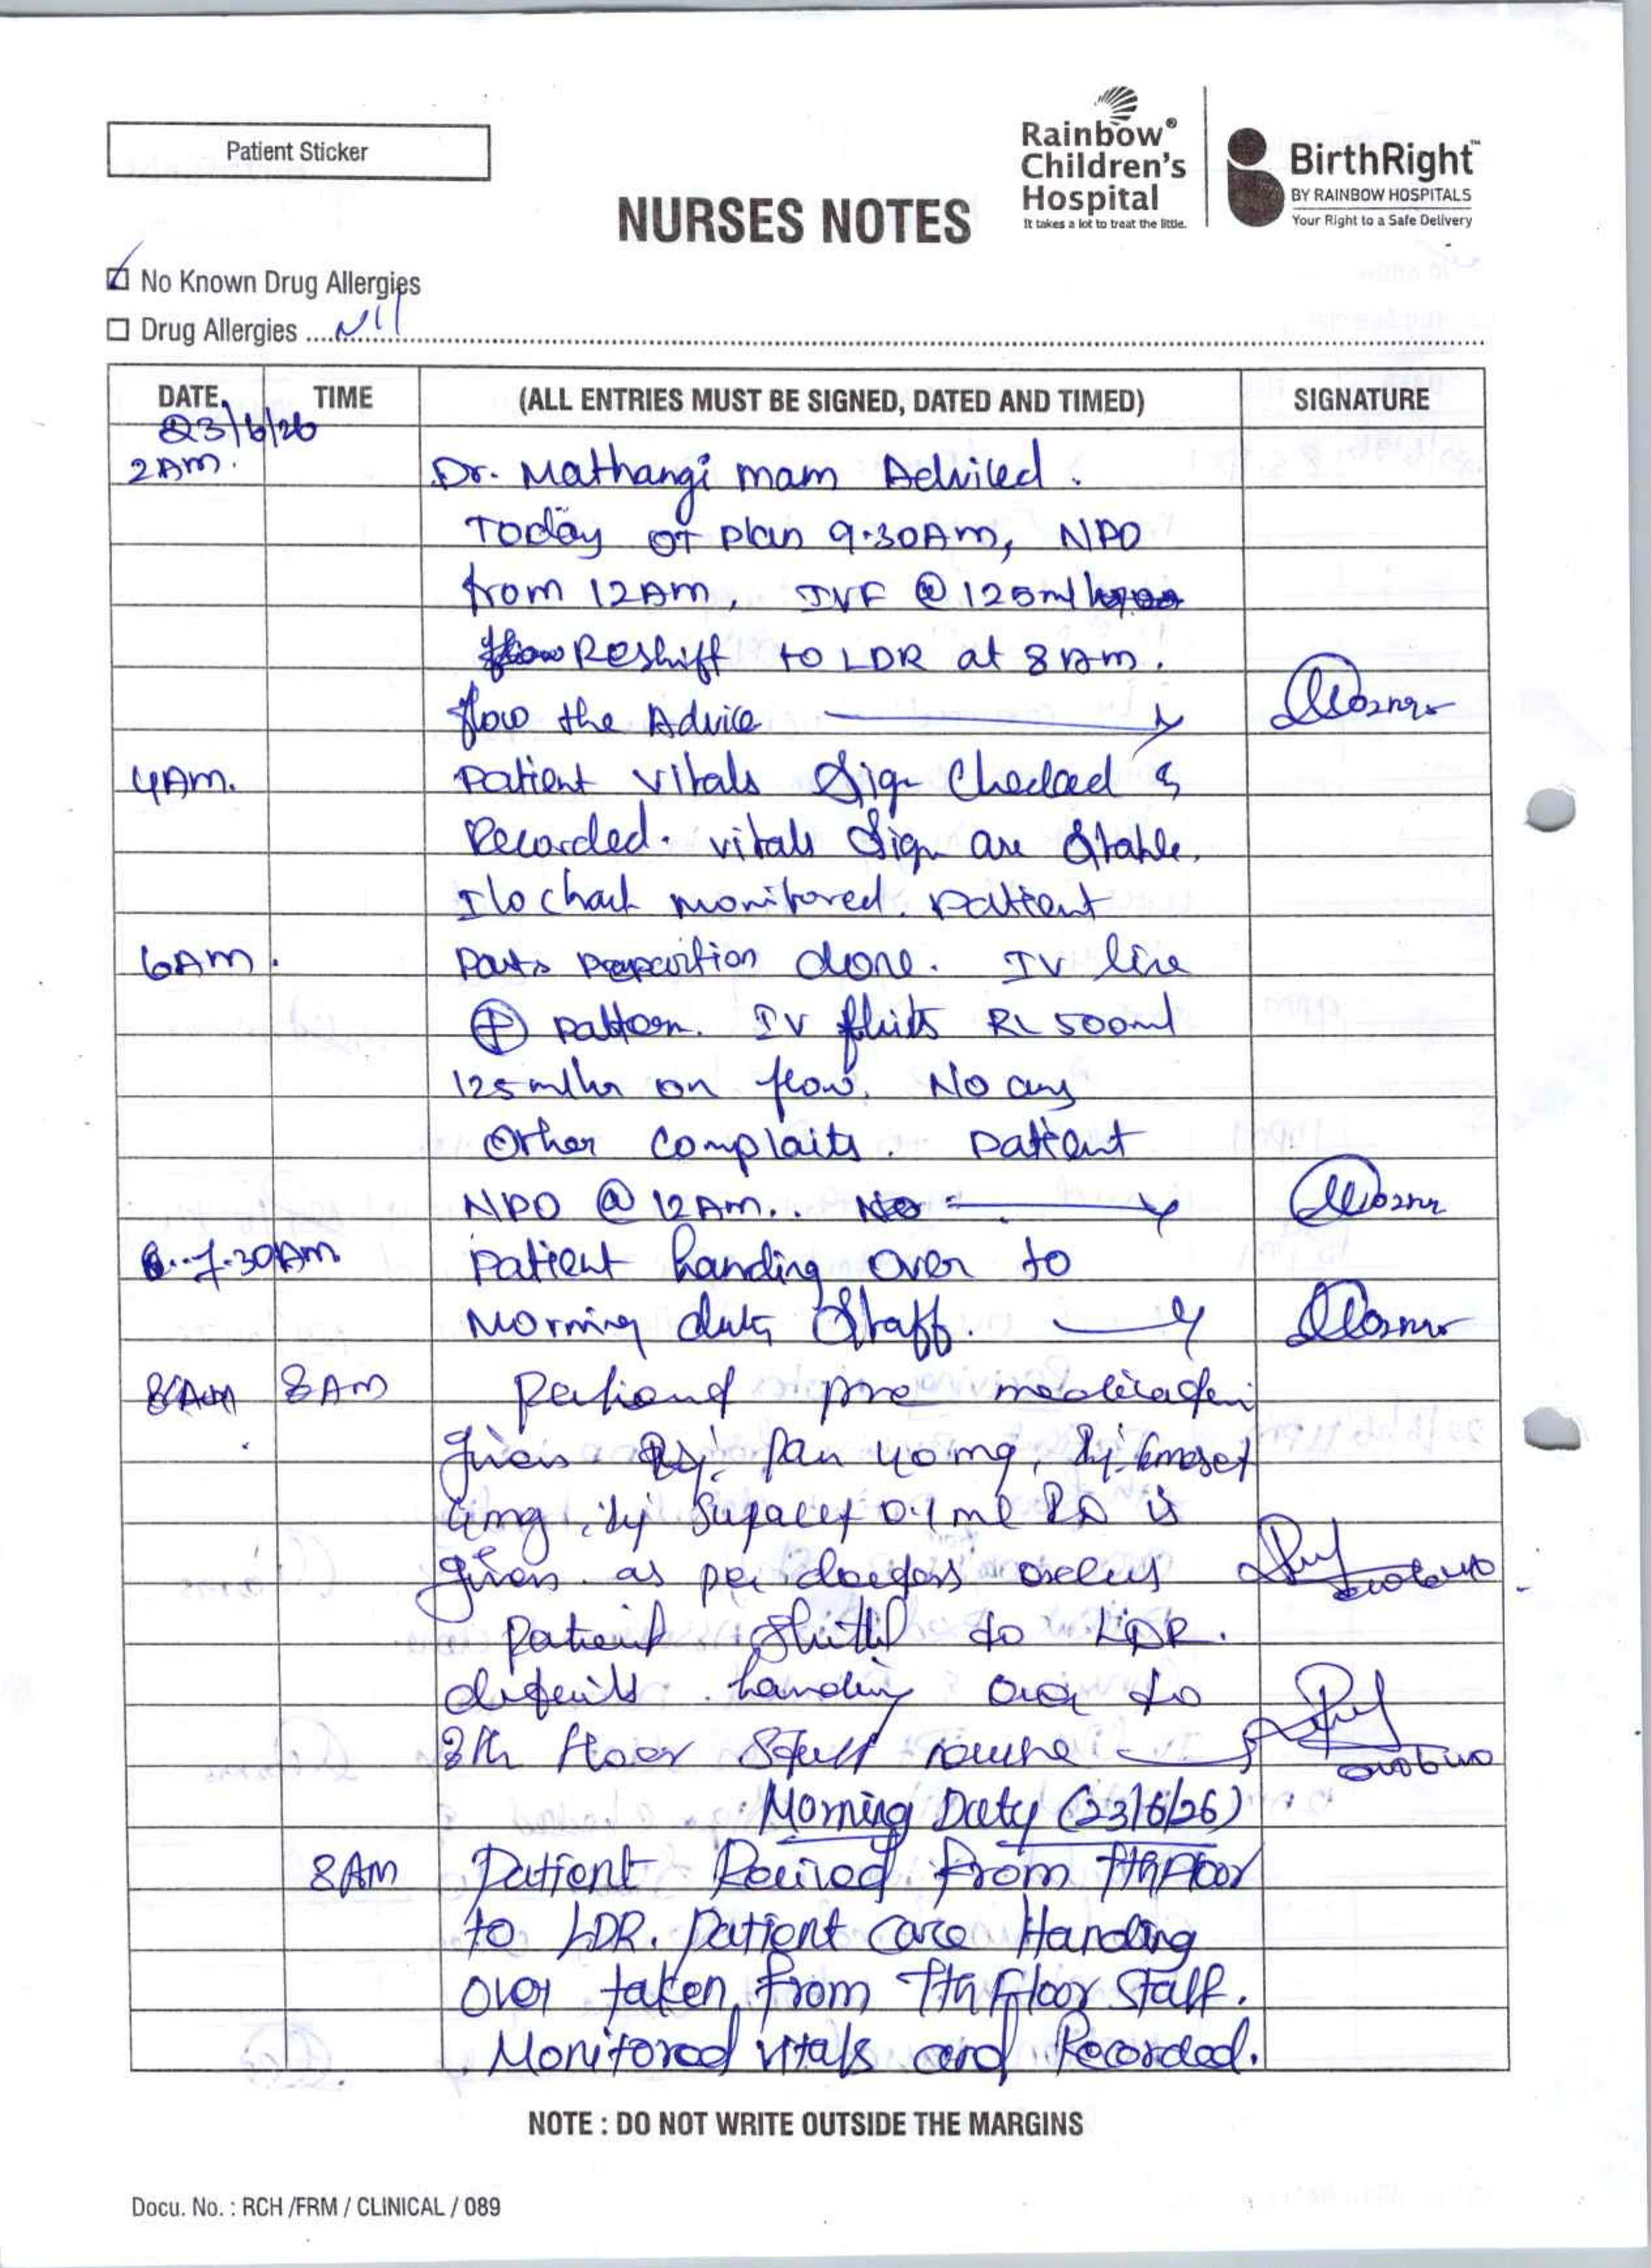 Patient Sticker
Rainbow®
Children's
Hospital
It takes a lot to treat the little.
BirthRight™
BY RAINBOW HOSPITALS
Your Right to a Safe Delivery
NURSES NOTES
No Known Drug Allergies
Drug Allergies Nil
DATE TIME (ALL ENTRIES MUST BE SIGNED, DATED AND TIMED) SIGNATURE
23/6/26
2 Am. Dr. Mathangi mam Adviced.
Today OT plan 9.30Am, NPO
from 12Am, IVF @ 125ml
Reshift to LDR at 8 Am.
flow the Advice
4Am. patient vitals Sign Checked &
Recorded. vitals Sign are Stable.
I/o chart monitored. patient
6Am. Parts done. IV line
⊕ IV fluids RL 500ml
125ml/hr on flow. No any
Other Complaits. patient
NPO @ 12Am..
7.30Am patient handing over to
Morning duty Staff.
8AM pre
Inj. Pan 40mg, Inj. Emeset
4mg, Inj is
given as per
patient to LDR.
handing over to
8th floor
Morning Duty (23/6/26)
8AM Patient Reeived from 7th Floor
to LDR. patient care Handing
over taken from 7th Floor Staff.
Monitored vitals and Recorded.
NOTE : DO NOT WRITE OUTSIDE THE MARGINS
Docu. No. : RCH /FRM / CLINICAL / 089